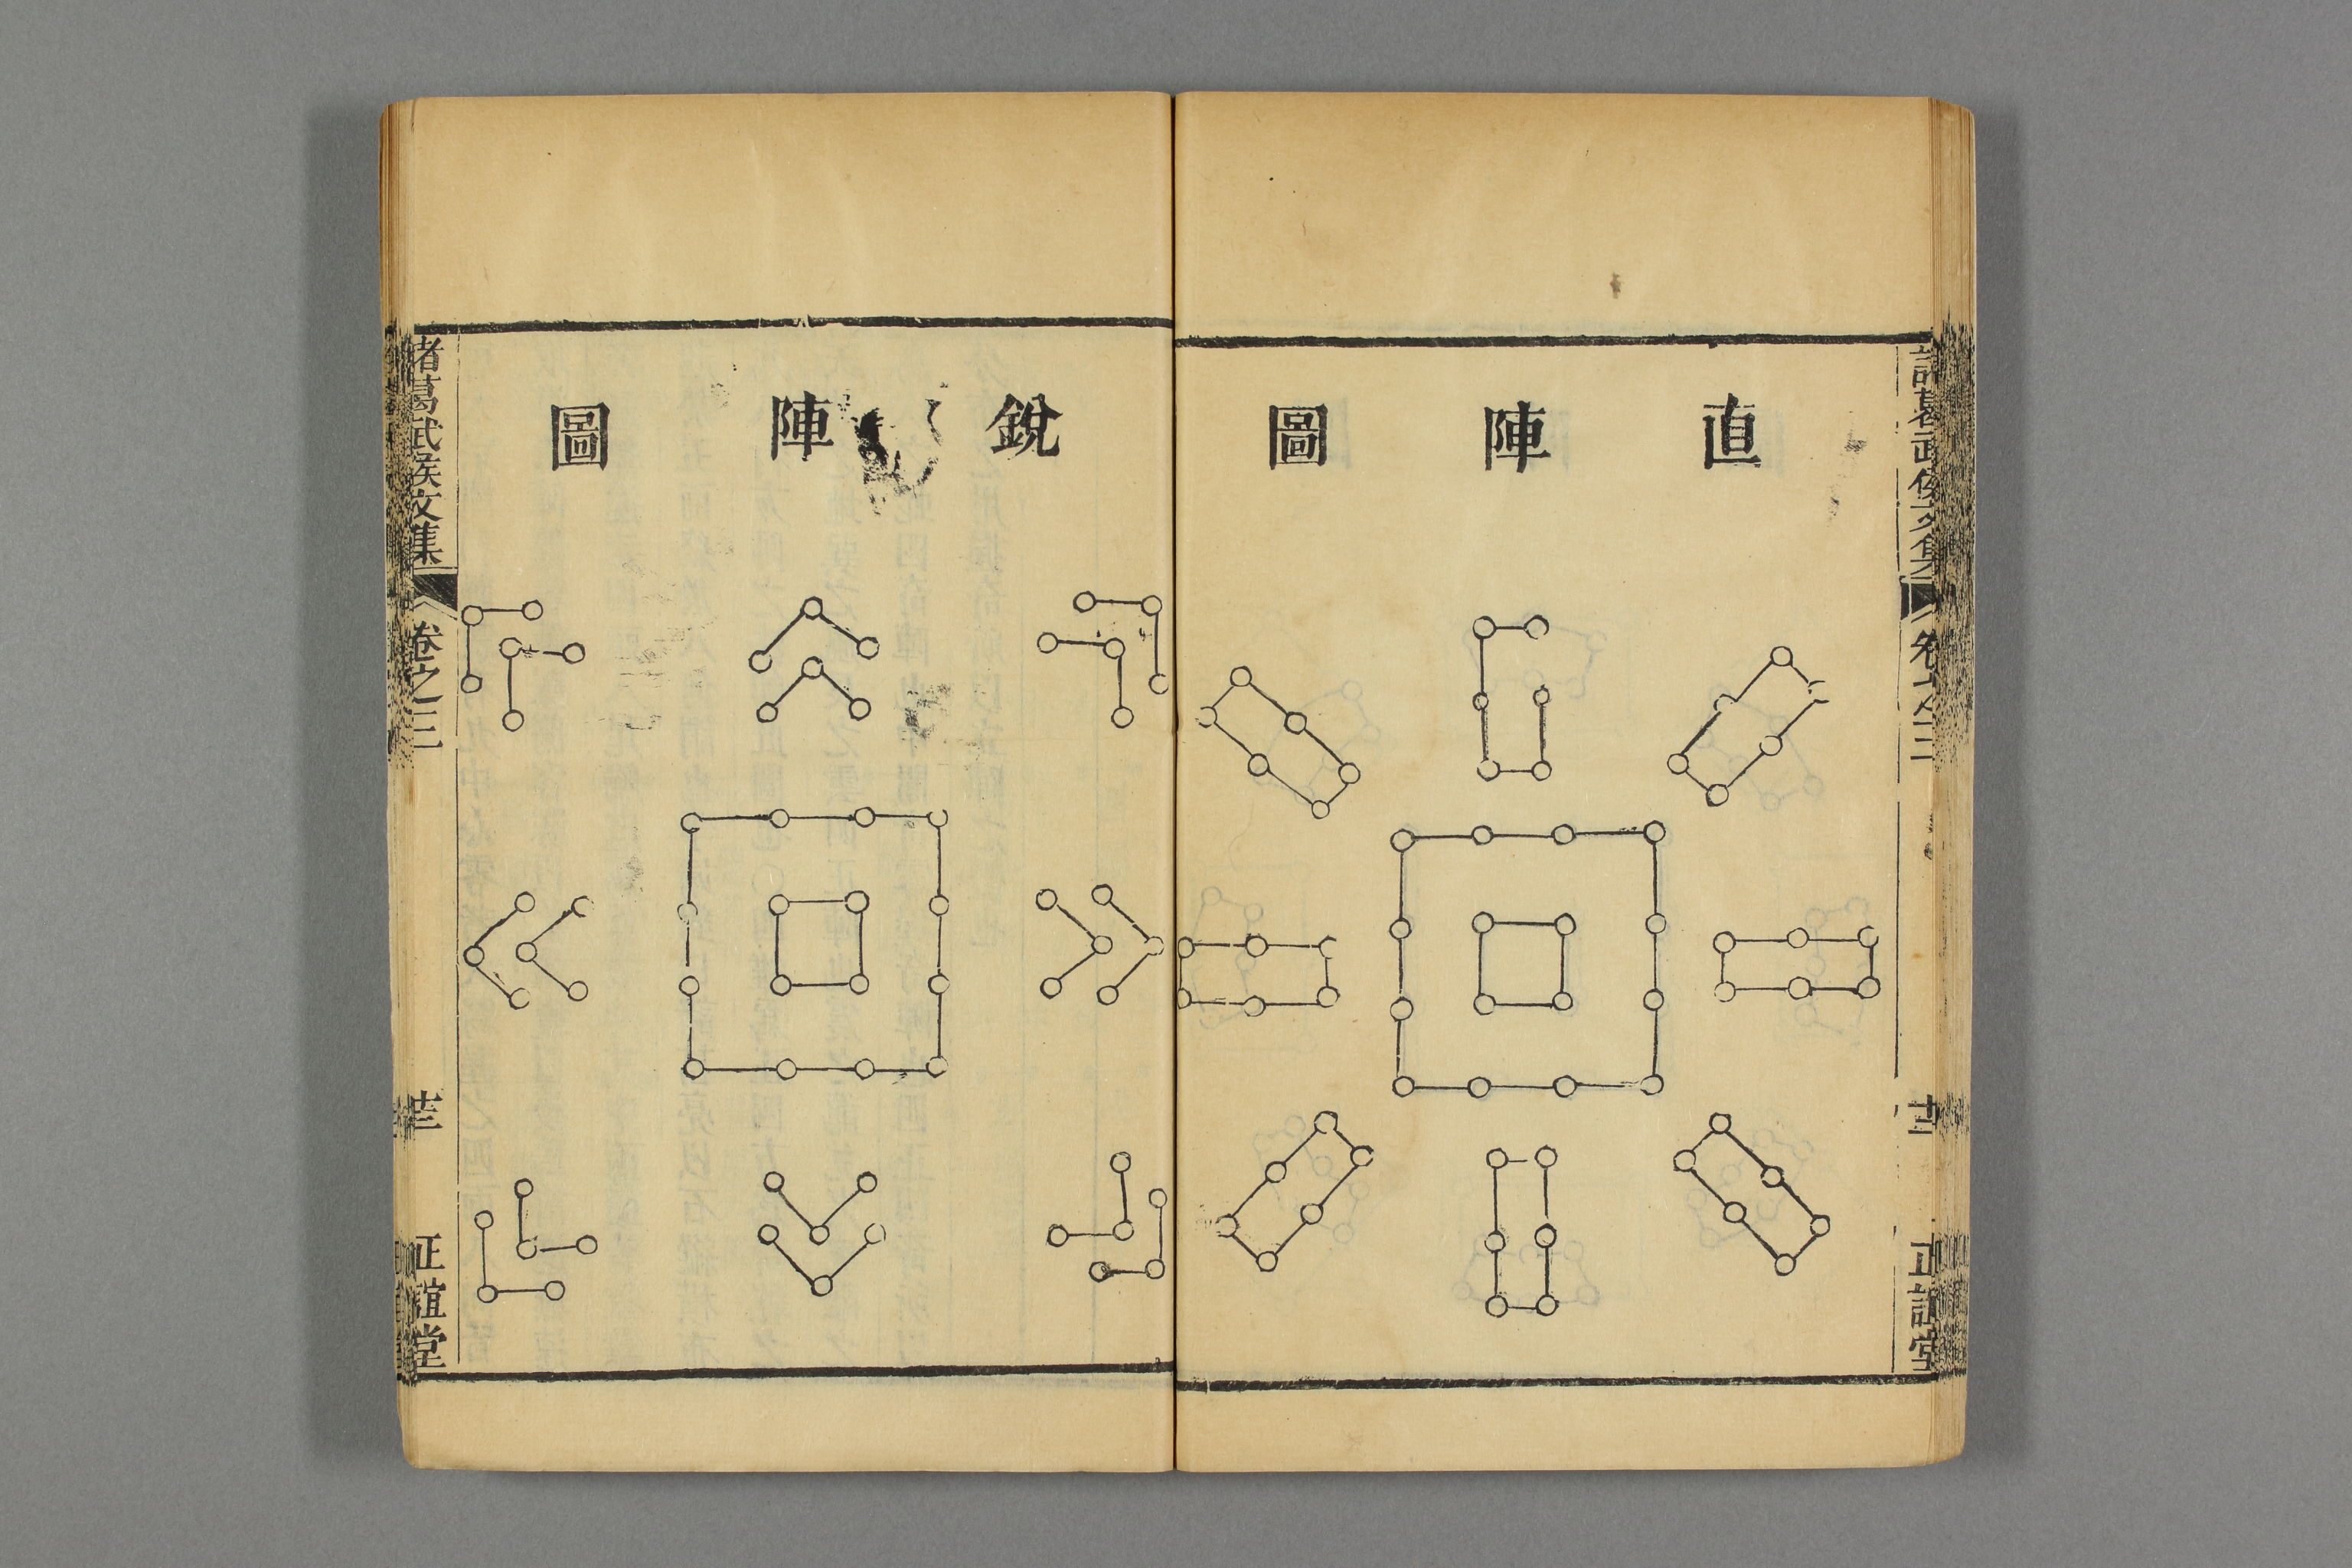 直陣圖
銳陣圖
諸葛武侯文集
卷之三
正誼堂
諸葛武侯文集
卷之三
正誼堂